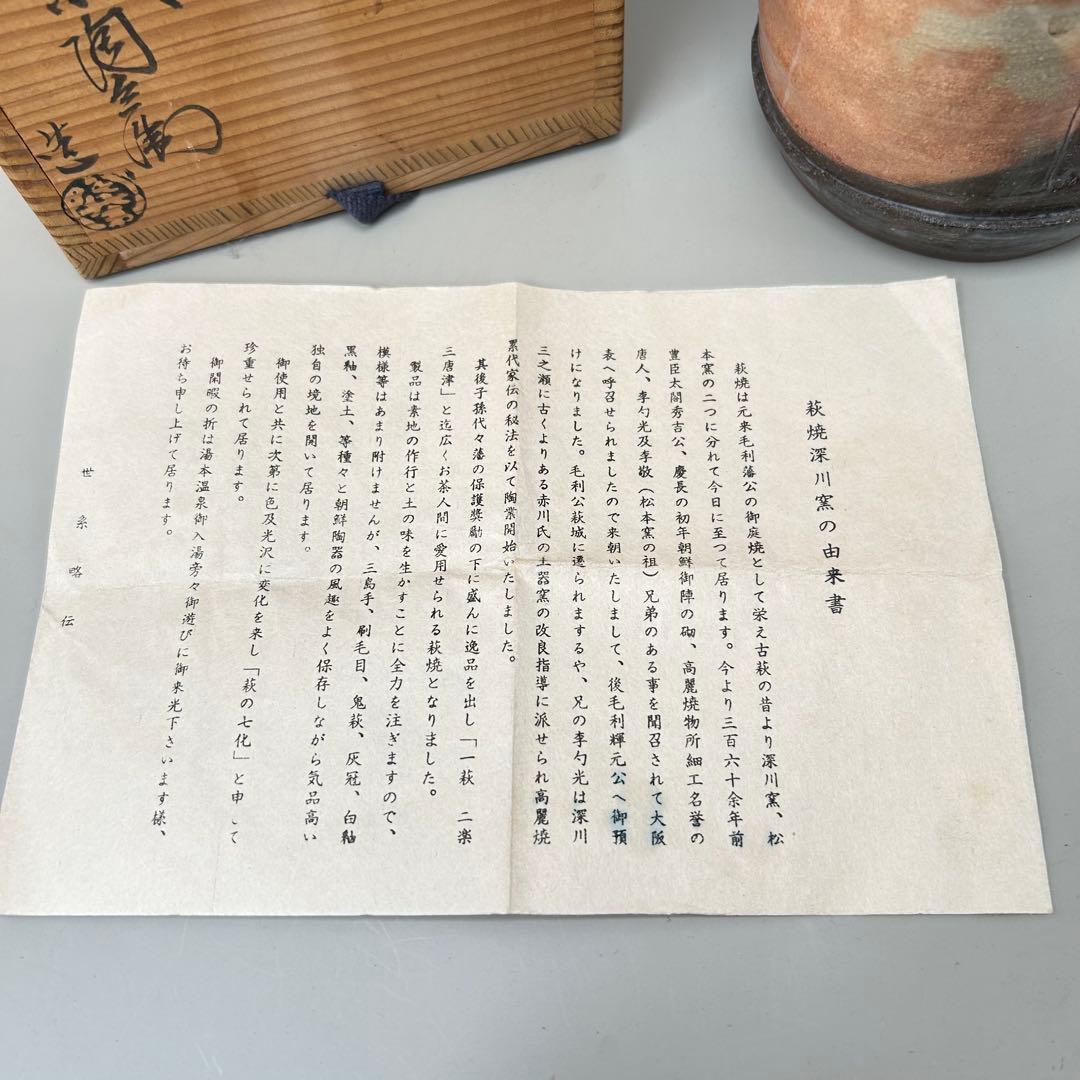 陶兵衛
造
萩焼深川窯の由来書
萩焼は元来毛利藩公の御庭焼として栄え古萩の昔より深川窯、松
本窯の二つに分れて今日に至つて居ります。今より三百六十余年前
豊臣太閤秀吉公、慶長の初年朝鮮御陣の砌、高麗焼物所細工名誉の
唐人、李勺光及李敬(松本窯の祖)兄弟のある事を聞召されて大阪
表へ呼召せられましたので来朝いたしまして、後毛利輝元公へ御預
けになりました。毛利公萩城に遷られまするや、兄の李勺光は深川
三之瀬に古くよりある赤川氏の土器窯の改良指導に派せられ高麗焼
累代家伝の秘法を以て陶業開始いたしました。
其後子孫代々藩の保護奨励の下に盛んに逸品を出し「一萩 二楽
三唐津」と迄広くお茶人間に愛用せられる萩焼となりました。
製品は素地の作行と土の味を生かすことに全力を注ぎますので、
模様等はあまり附けませんが、三島手、刷毛目、鬼萩、灰冠、白釉
黒釉、塗土、等種々と朝鮮陶器の風趣をよく保存しながら気品高い
独自の境地を開いて居ります。
御使用と共に次第に色及光沢に変化を来し「萩の七化」と申して
珍重せられて居ります。
御閑暇の折は湯本温泉御入湯旁々御遊びに御来光下さいます様、
お待ち申し上げて居ります。
世系略伝